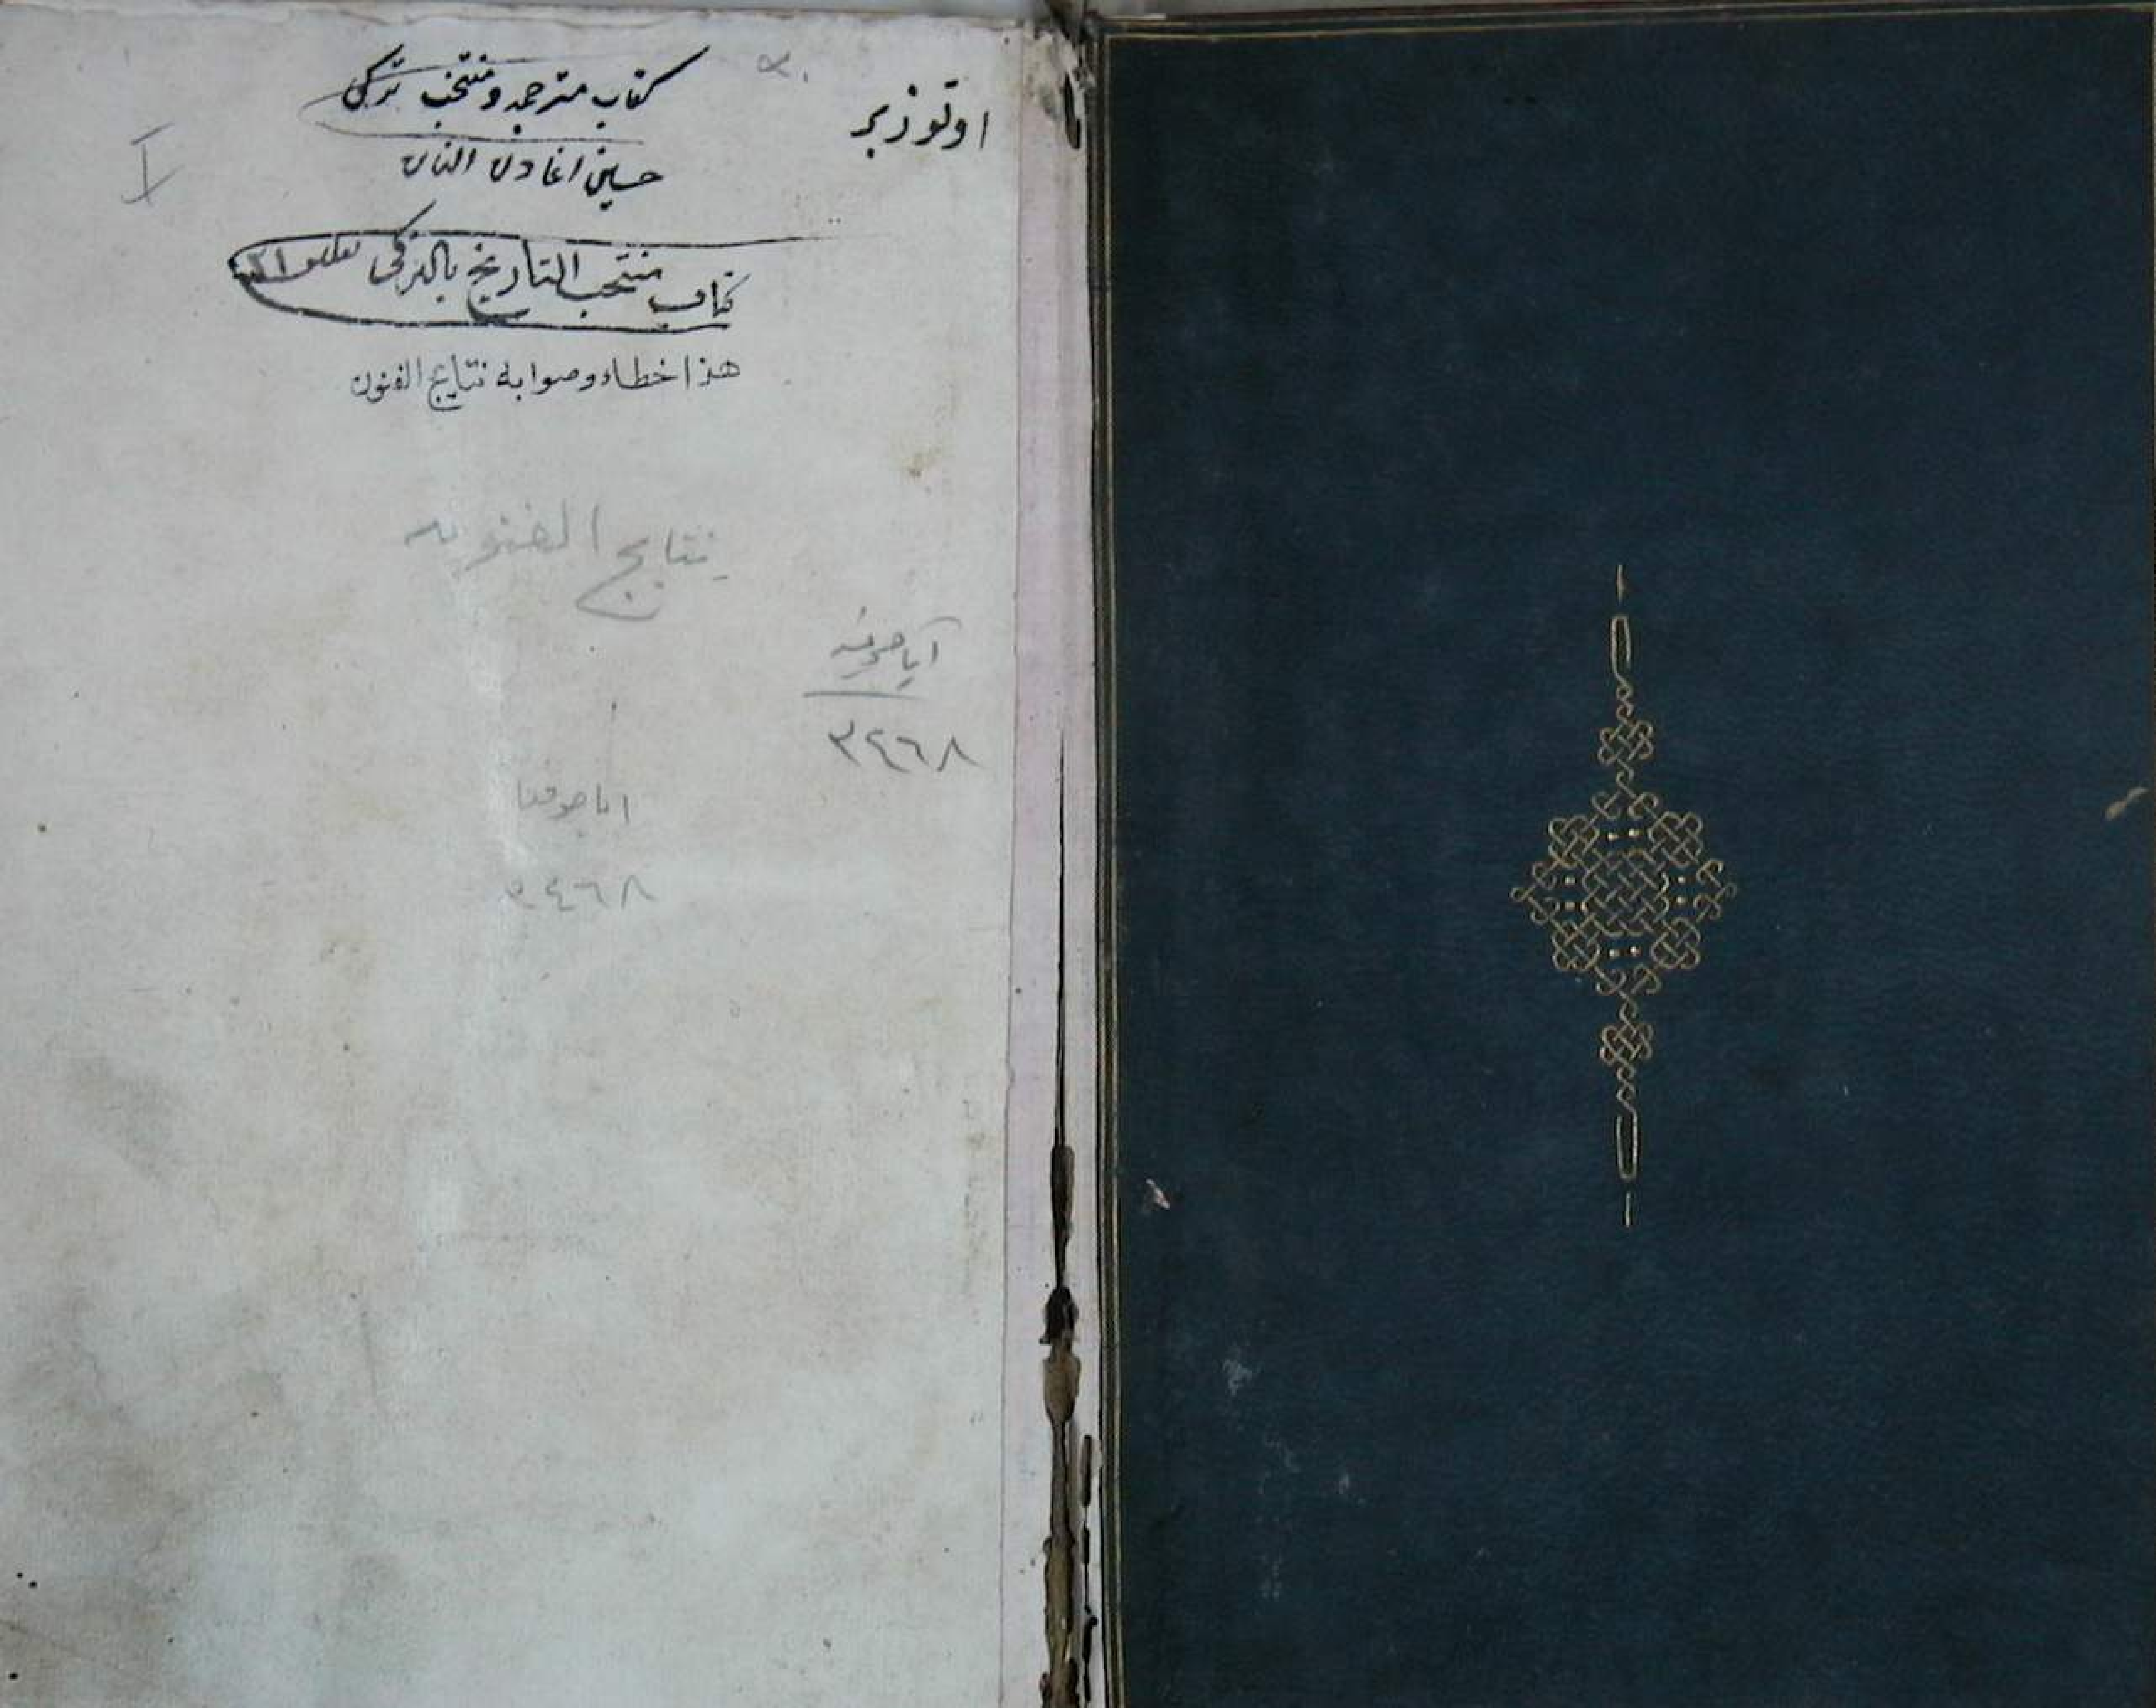 اوتوز بر
كتاب مترجمه ومنتخب تركى
حسين اغادن النان
كتاب منتخب التاريخ بالتركى
هذا خطاء وصوابه نتايج الفنون
نتايج الفنون
آياصوفيه
٣٤٦٨
اياصوفيا
٣٤٦٨